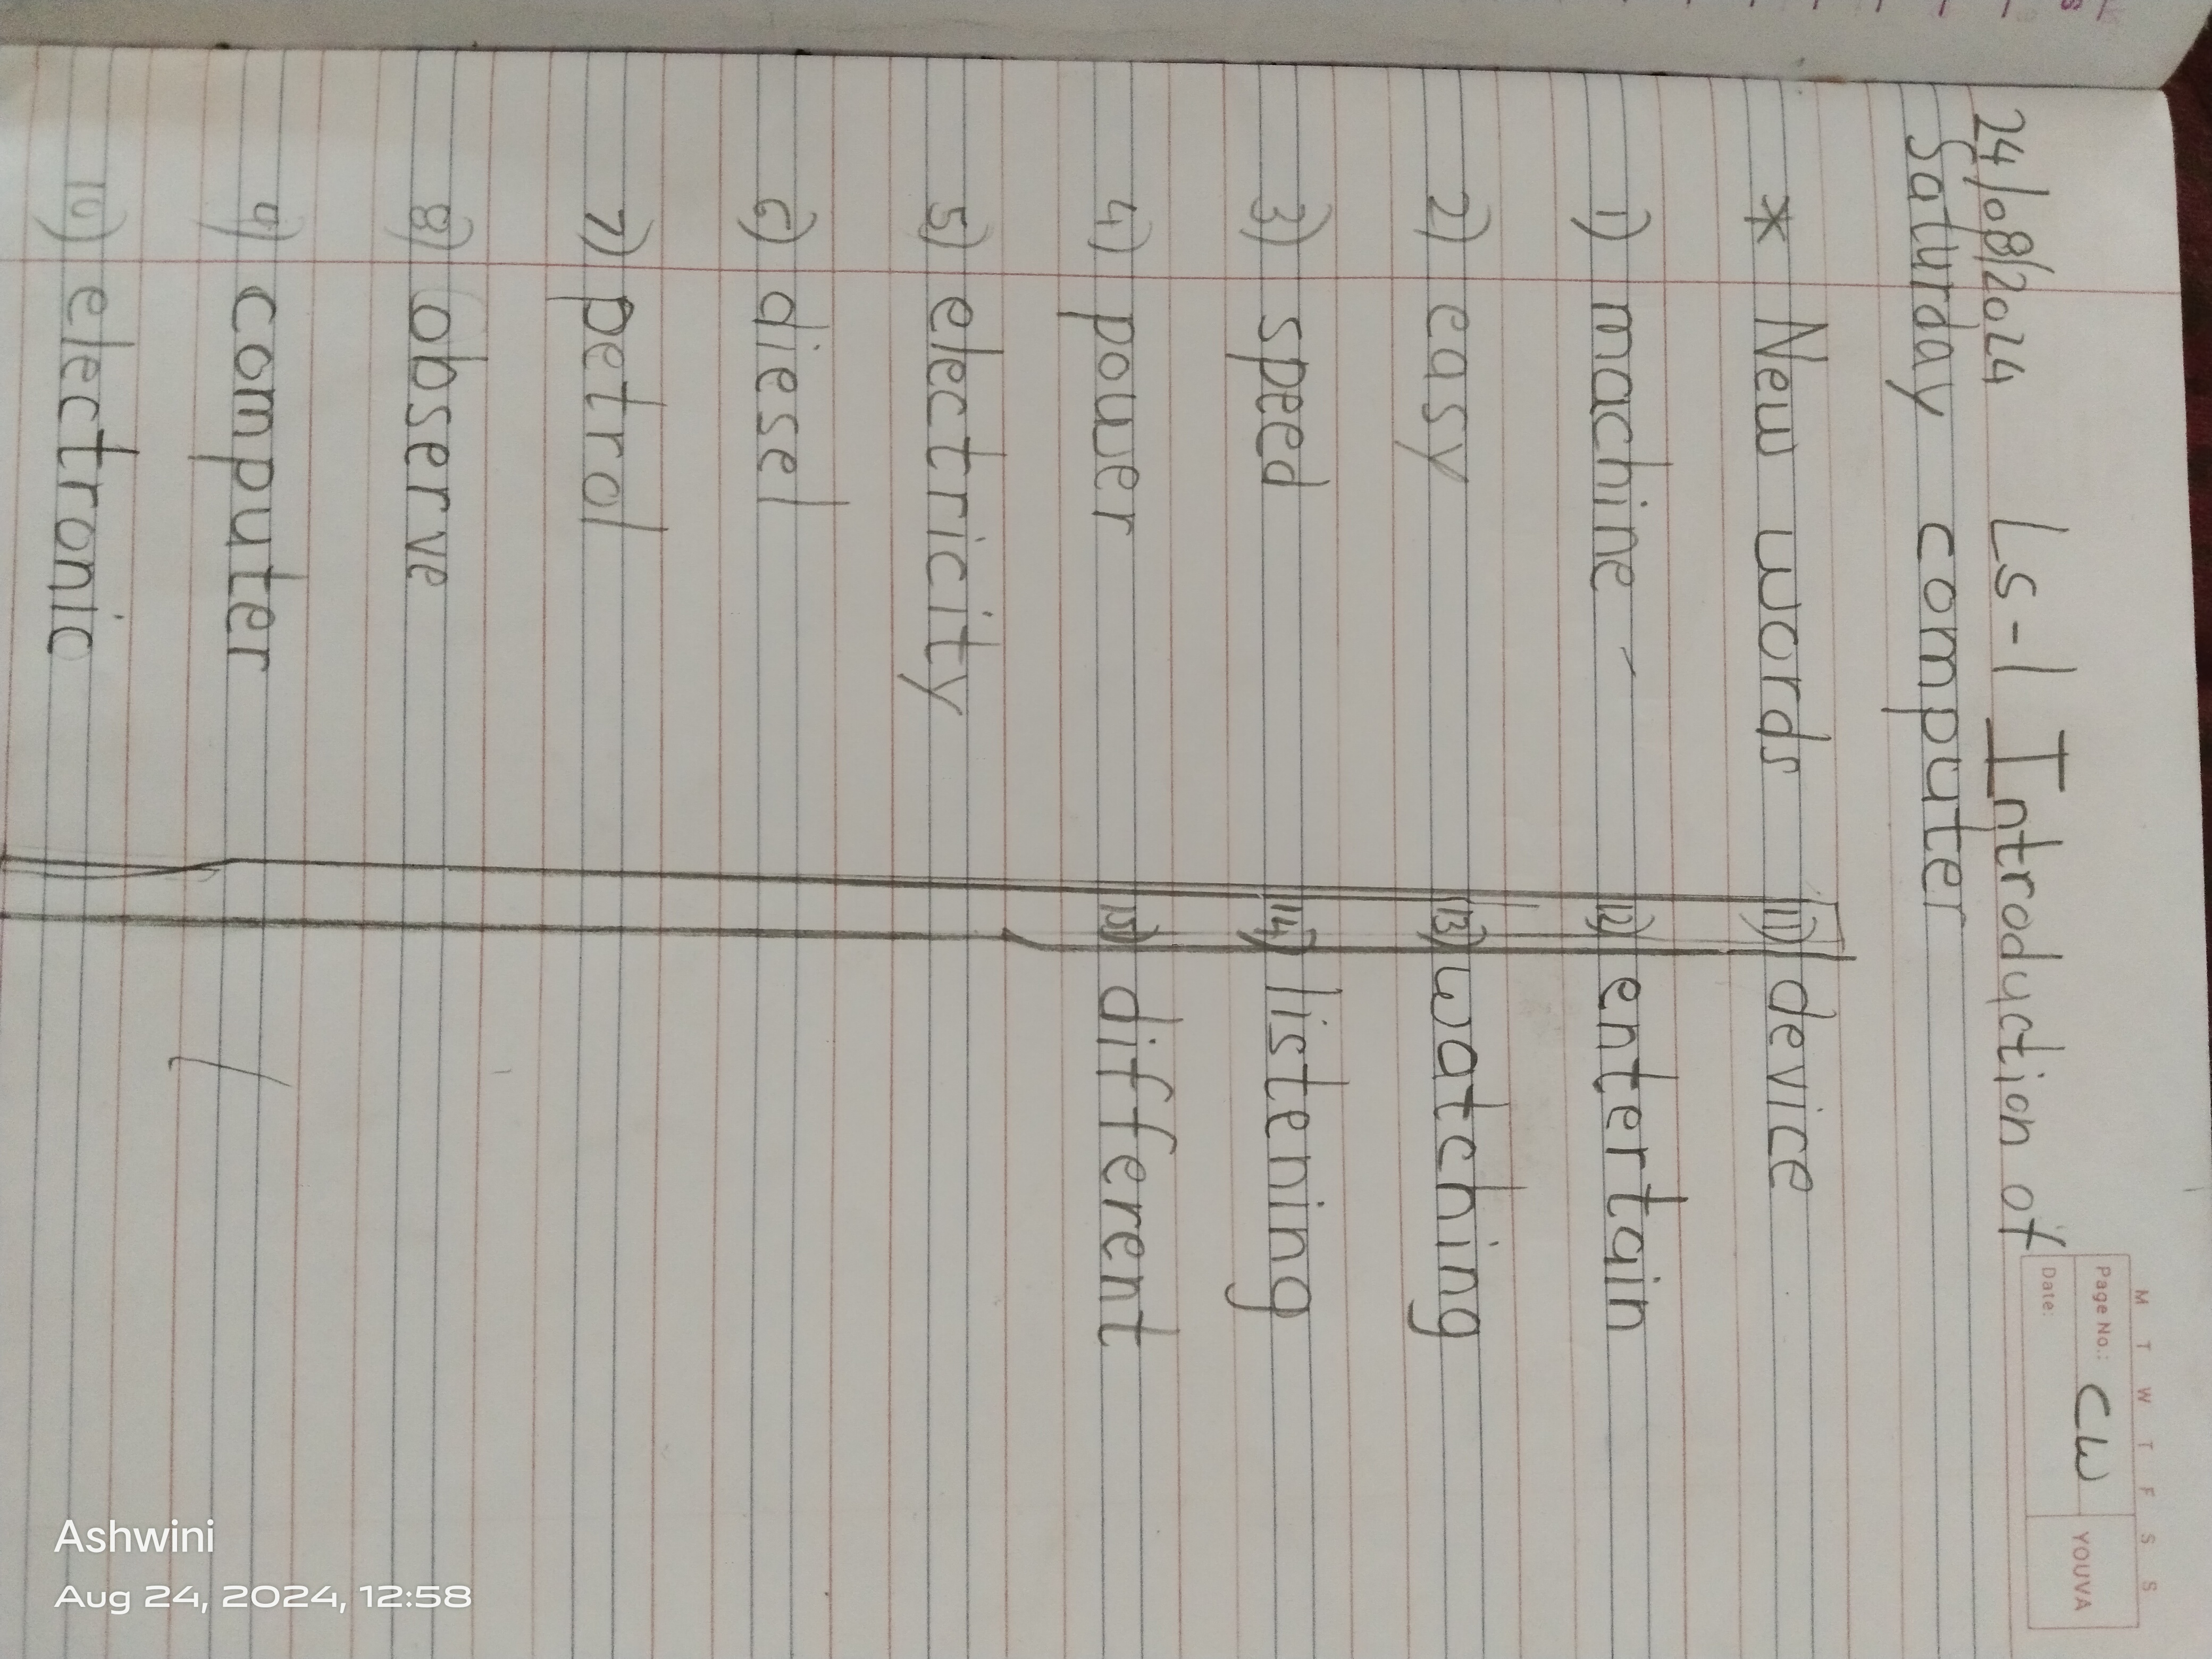 M T W T F S S
Page No.: CW
Date:
YOUVA
24/08/2024 Ls-1 Introduction of
Saturday computer
* New words
1) machine
2) easy
3) speed
4) power
5) electricity
6) diesel
7) petrol
8) observe
9) computer
10) electronic
11) device
12) entertain
13) watching
14) listening
15) different
Ashwini
Aug 24, 2024, 12:58